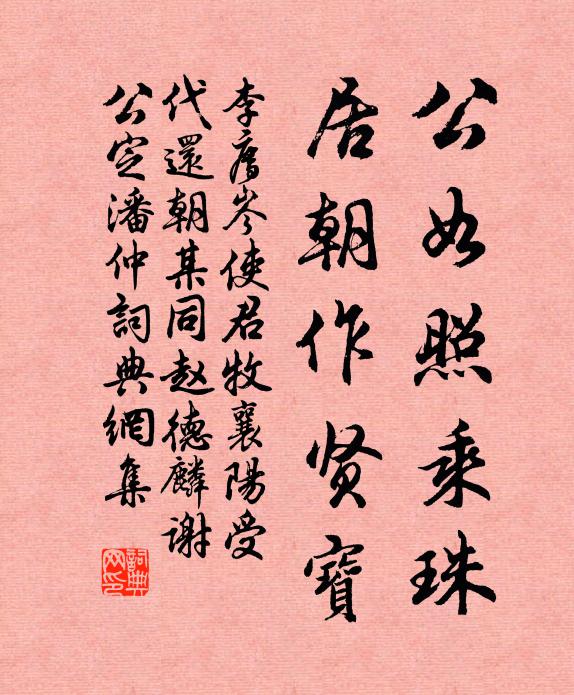 公如照乘珠
居朝作贤寳
李唐岑使君牧襄陽受
代還朝某同赵德麟谢
公定潘仲詞典網集
詞典網印